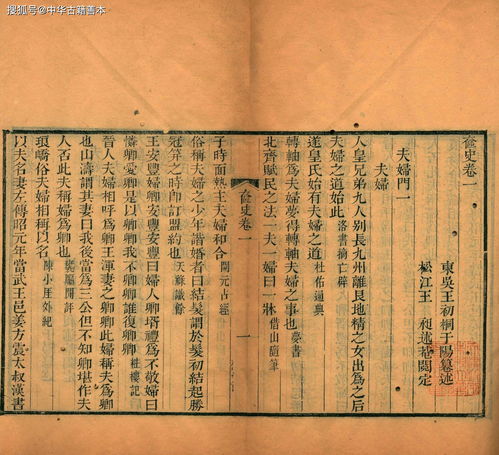 搜狐号@中华古籍善本
奩史卷一
東吳王初桐于陽纂述
松江王 昶述菴閱定
夫婦門一
夫婦
人皇兄弟九人别長九州離艮地精之女出爲之后
夫婦之道始此洛書摘亡辟
遂皇氏始有夫婦之道杜佑通典
轉軸爲夫婦夢得轉軸夫婦之事也夢書
北齊賦民之法一夫一婦曰一牀借山隨筆
奩史卷一
一
子時面熱主夫婦和合開元占經
俗稱夫婦之少年諧婚者曰結髮謂於髮初結起勝
冠笄之時卽訂盟約也天蘇識餘
王安豐婦卿安豐安豐曰婦人卿壻禮爲不敬婦曰
憐卿愛卿是以卿卿我不卿卿誰復卿卿粧樓記
晉人夫婦相呼爲卿王渾妻之卿卿此婦稱夫爲卿
也山濤謂其妻曰我後當爲三公但不知卿堪作夫
人否此夫稱婦爲卿也
瑣嶠俗夫婦相稱以名陳小厓外紀
以夫名妻左傳昭元年當武王邑姜方震太叔漢書